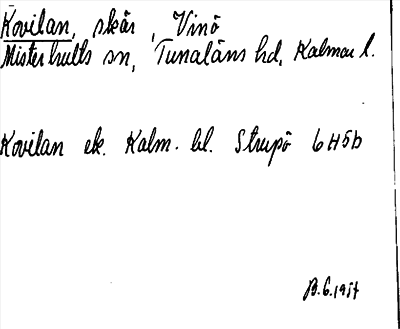 Kovilan, skär, Vinö
Misterhults sn, Tunaläns hd, Kalmar l.
Kovilan ek. Kalm. bl. Strupö 6H5b
B.G. 1957